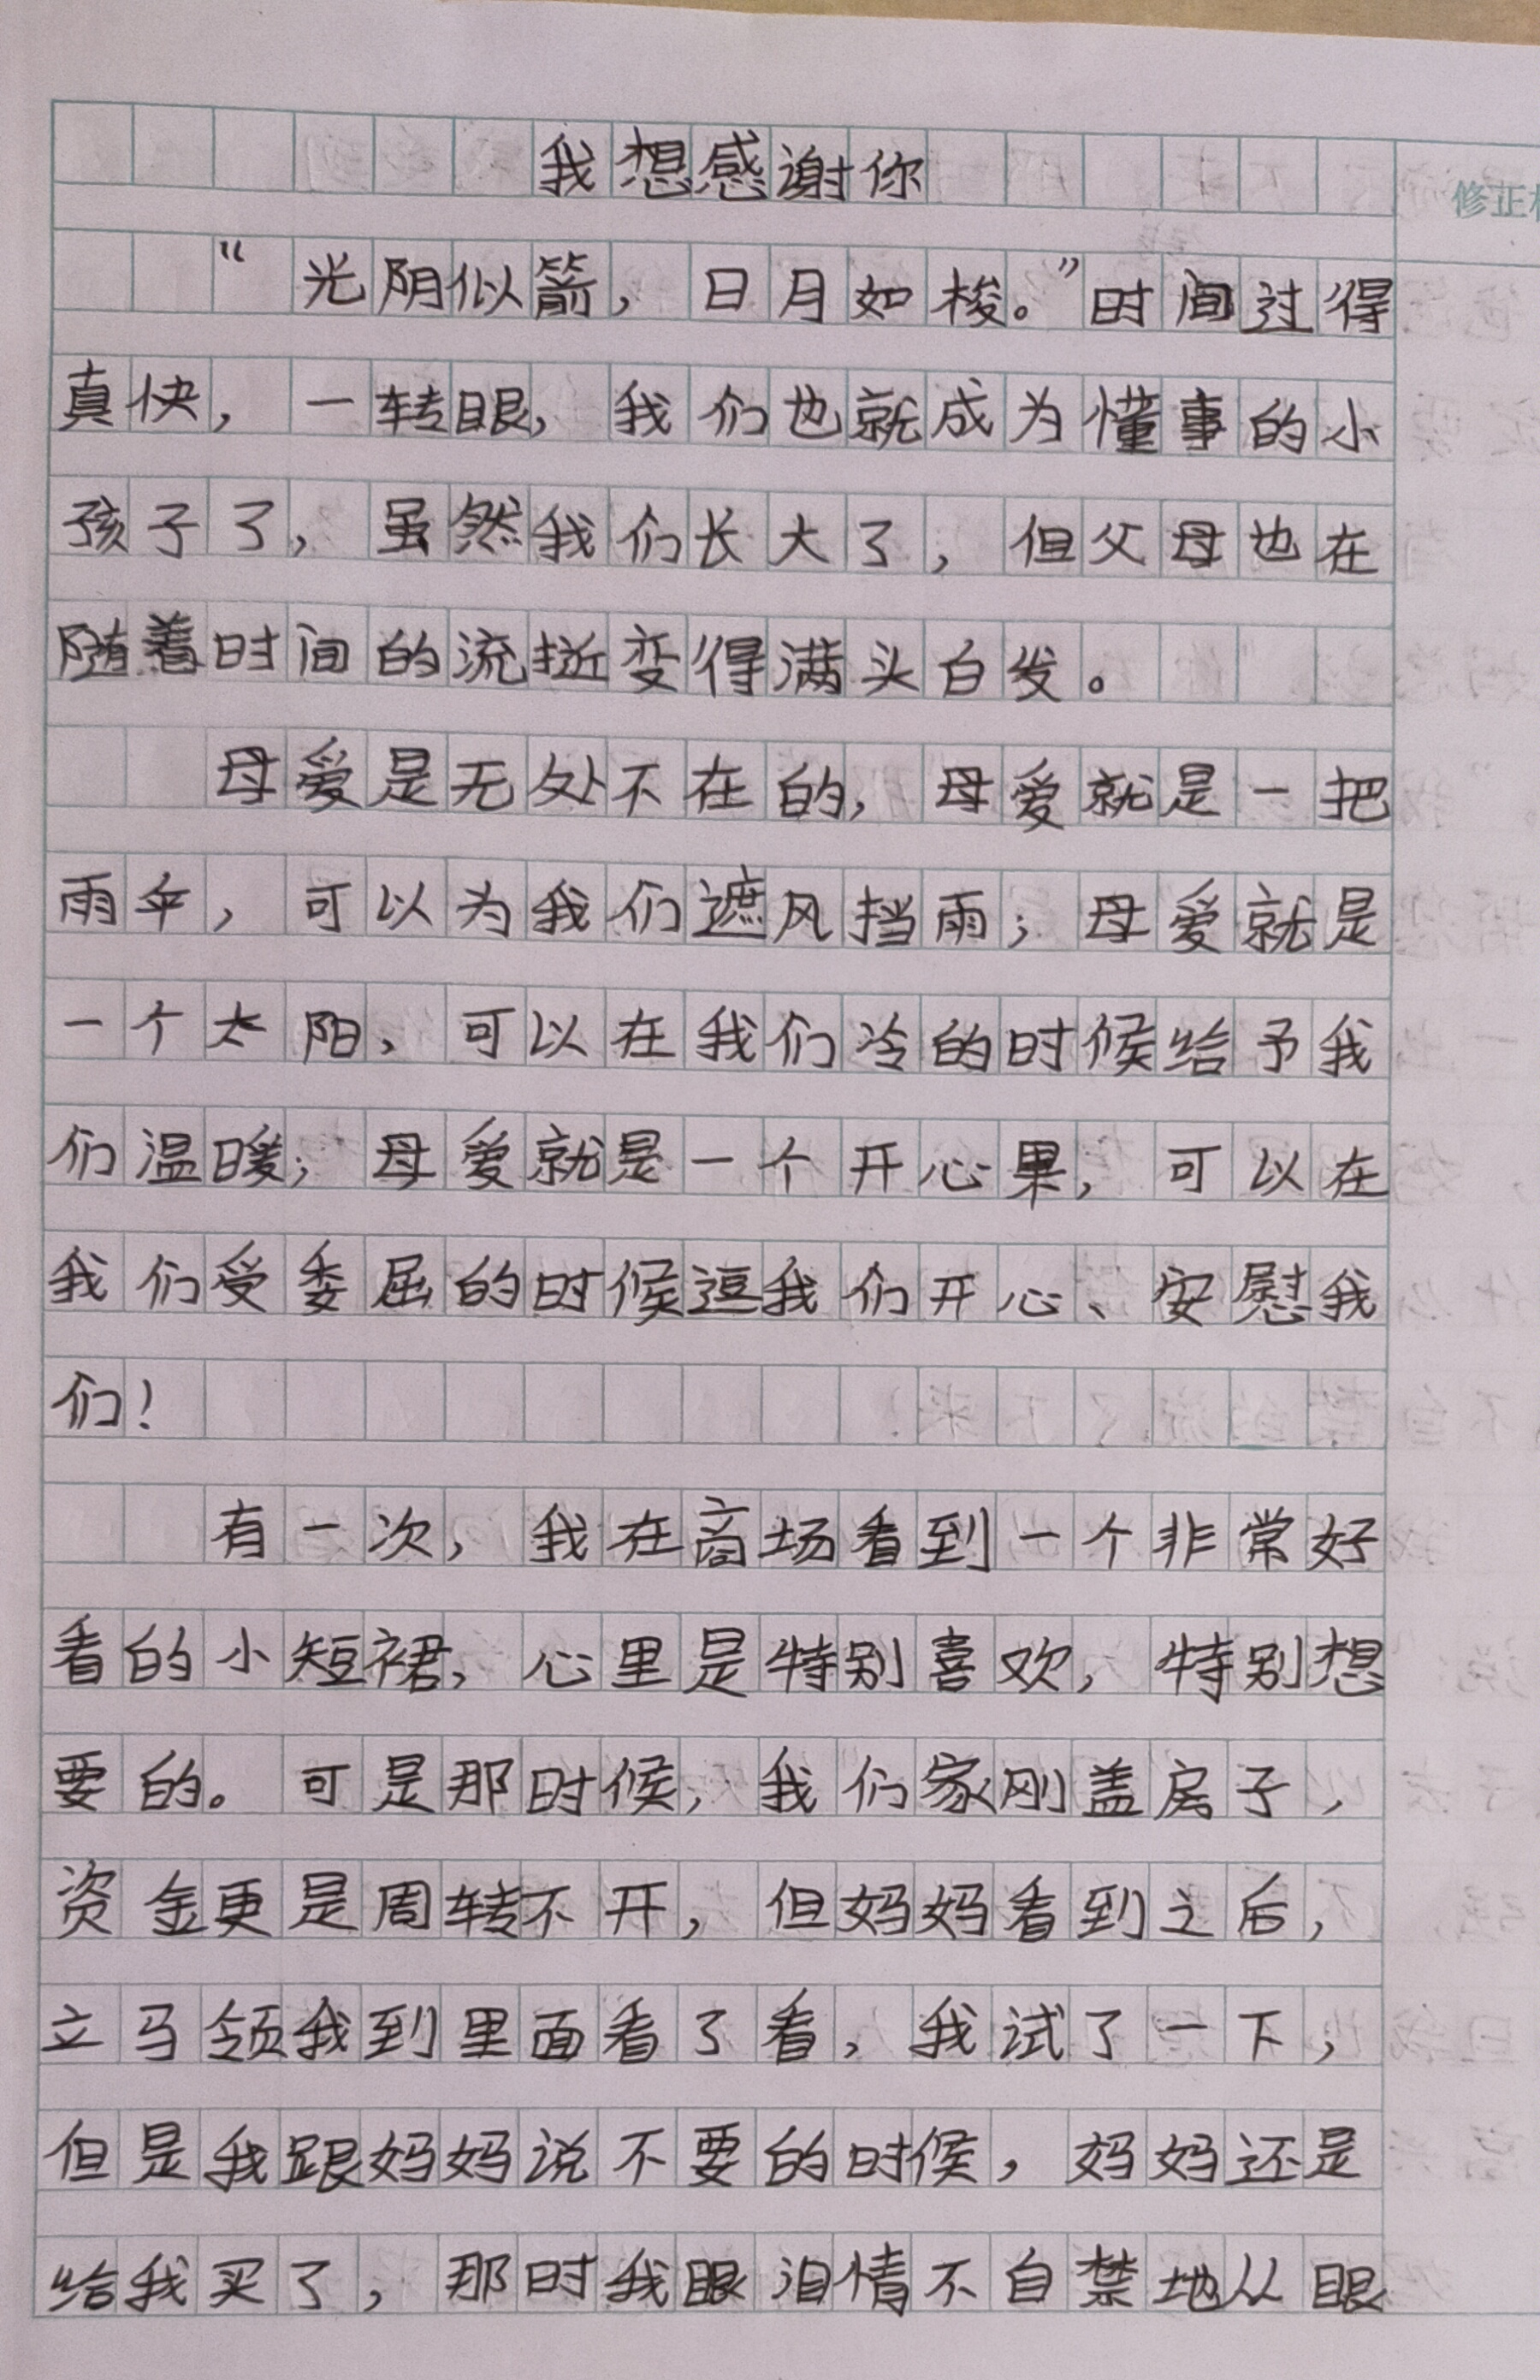 我想感谢你
修正
“光阴似箭，日月如梭。”时间过得
真快，一转眼，我们也就成为懂事的小
孩子了，虽然我们长大了，但父母也在
随着时间的流挺变得满头白发。
母爱是无处不在的，母爱就是一把
雨伞，可以为我们遮风挡雨；母爱就是
一个太阳，可以在我们冷的时候给予我
们温暖；母爱就是一个开心果，可以在
我们受委屈的时候逗我们开心、安慰我
们！
有一次，我在商场看到一个非常好
看的小短裙，心里是特别喜欢，特别想
要的。可是那时候，我们家刚盖房子，
资金更是周转不开，但妈妈看到之后，
立马领我到里面看了看，我试了一下，
但是我跟妈妈说不要的时候，妈妈还是
给我买了，那时我眼泪情不自禁地从眼